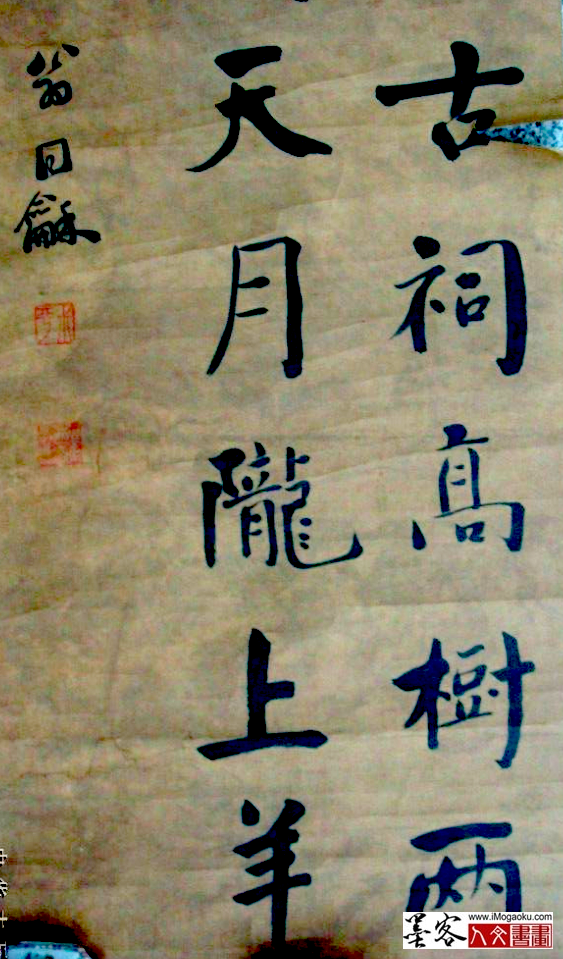 古祠高樹两
天月隴上羊
翁同龢
墨客
www.iMogaoku.com
人文書畫